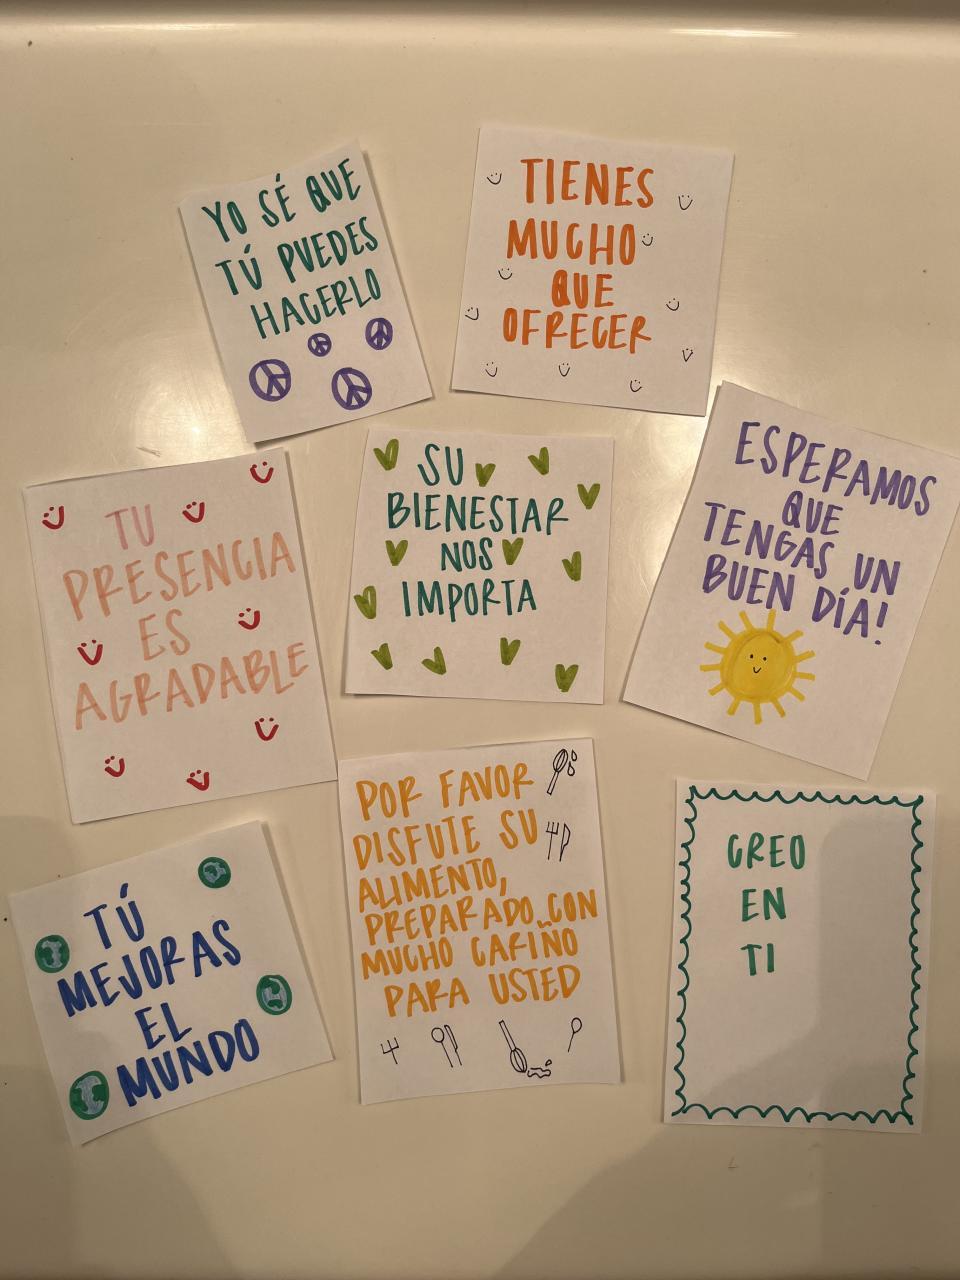 YO SÉ QUE
TÚ PUEDES
HACERLO
TIENES
MUCHO
QUE
OFRECER
TU
PRESENCIA
ES
AGRADABLE
SU
BIENESTAR
NOS
IMPORTA
ESPERAMOS
QUE
TENGAS UN
BUEN DÍA!
TÚ
MEJORAS
EL
MUNDO
POR FAVOR
DISFUTE SU
ALIMENTO,
PREPARADO CON
MUCHO CARIÑO
PARA USTED
CREO
EN
TI